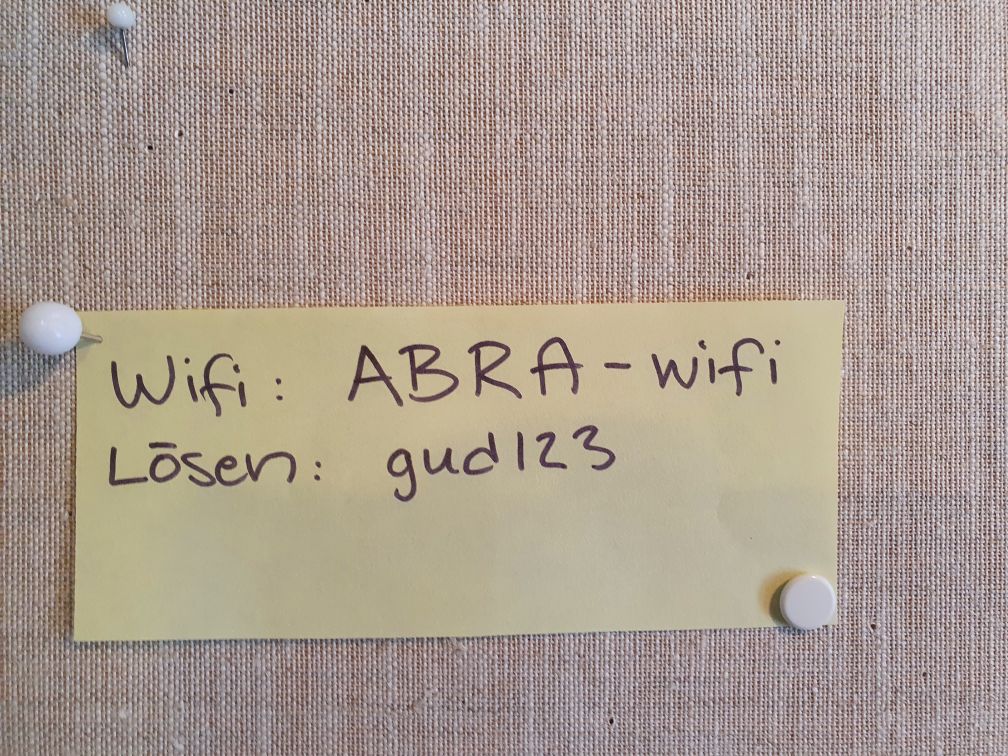 Wifi: ABRA-wifi
Lösen: gud123